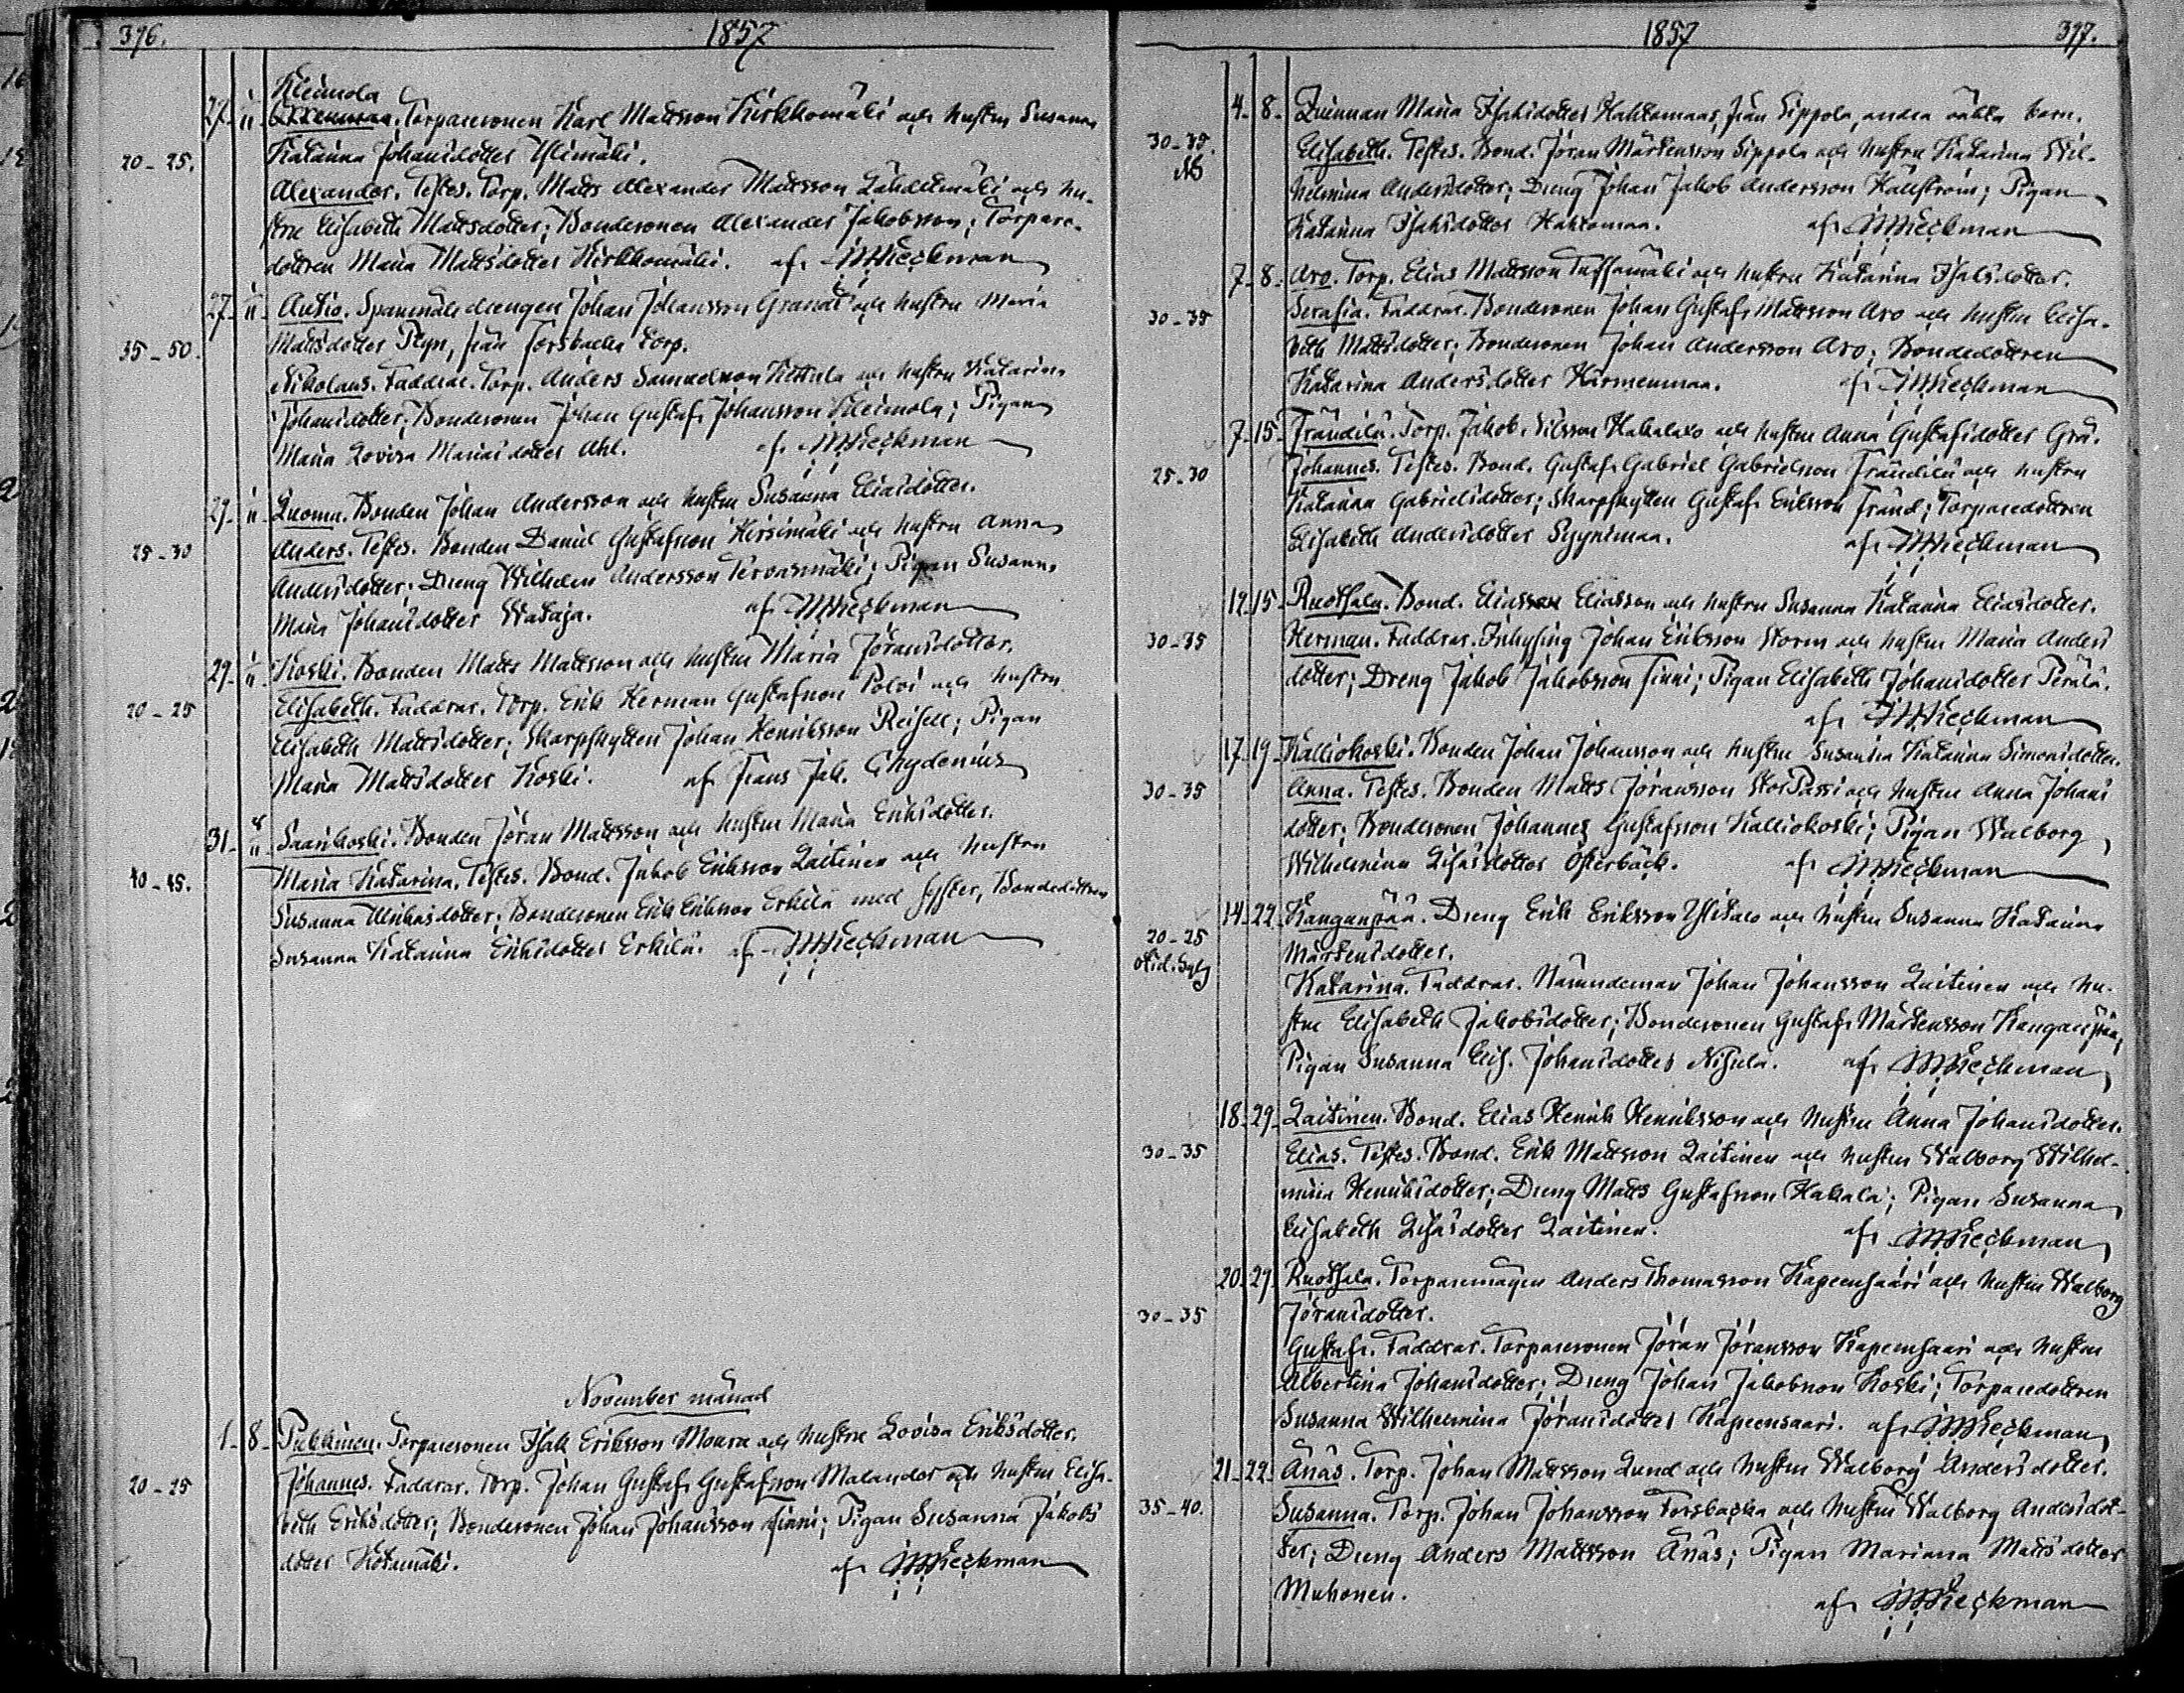 376. 1857
Kleimola
27. 1/11 Torparesonen Karl Mattsson Kirkkomäki och hustru Susanna
20-25. Katarina Johansdotter Ylimäki.
Alexander. Testes. Torp. Matts Alexander Mattsson Lähdetmäki och hu-
stru Elisabeth Mattsdotter; Bondesonen Alexander Jakobsson; Torpare-
dottren Maria Mattsdotter Kirkkomäki. af
27. 1/11 Autio. Spanmålsdrengen Johan Johansson Granat och hustru Maria
35-50. Mattsdotter från Forsbacka Torp.
Nikolaus. Faddrar. Torp. Anders Samuelsson och hustru Katarina
Johansdotter; Bondesonen Johan Gustaf Johansson Kleimola; Pigan
Maria Lovisa Mariasdotter Ahl. af
29. 1/11 Luoma. Bonden Johan Andersson och hustru Susanna Eliasdotter.
25-30 Anders. Testes. Bonden Daniel Gustafsson Hirsimäki och hustru Anna
Andersdotter; Dreng Wilhelm Andersson Tervasmäki; Pigan Susanna
Maria Johansdotter Wataja. af
29. 1/11 Koski. Bonden Matts Mattsson och hustru Maria Jöransdotter.
20-25 Elisabeth. Faddrar. Torp. Erik Herman Gustafsson Polvi och hustru
Elisabeth Mattsdotter; Skarpskytten Johan Henriksson Reisell; Pigan
Maria Mattsdotter Koski. af Frans Jak. Chydenius
31. 8/11 Saarikoski. Bonden Jöran Mattsson och hustru Maria Eriksdotter.
40-45. Maria Katarina. Testes. Bond. Jakob Eriksson Laitinen och hustru
Susanna Mikasdotter; Bondesonen Erik Eriksson Erkilä med syster, Bondedottren
Susanna Katarina Eriksdotter Erkilä. af
November månad
1. 8. Pukkinen. Torparesonen Isak Eriksson Moura och hustru Lovisa Eriksdotter.
20-25 Johannes. Faddrar. Torp. Johan Gustaf Gustafsson Malander och hustru Elisa-
beth Eriksdotter; Bondesonen Johan Johansson Finni; Pigan Susanna Jakobs
dotter Kotamäki. af
1857 377.
4. 8. Quinnan Maria Isaksdotter Hahtomaas, från Sippola, andra oäkta barn.
30-35. Elisabeth. Testes. Bond. Jöran Mårtensson Sippola och hustru Katarina Wil-
helmina Andersdotter; Dreng Johan Jakob Andersson Källström; Pigan
Katarina Isaksdotter Hahtomaa. af
7. 8. Aro. Torp. Elias Mattsson Tassamäki och hustru Katarina Isaksdotter.
30-35 Serafia. Faddrar. Bondesonen Johan Gustaf Mattsson Aro och hustru Elisa-
beth Mattsdotter; Bondesonen Johan Andersson Aro; Bondedottren
Katarina Andersdotter Härmenmaa. af
7. 15. Frändilä. Torp. Jakob Nilsson Hakalaxo och hustru Anna Gustafsdotter Grå.
25-30 Johannes. Testes. Bond. Gustaf Gabriel Gabrielsson Frändilä och hustru
Katarina Gabrielsdotter; Skarpskytten Gustaf Eriksson Fränd; Torparedottren
Elisabeth Andersdotter Syynimaa. af
12. 15. Ruotsala. Bond. Elias Eliasson och hustru Susanna Katarina Eliasdotter.
30-35 Herman. Faddrar. Inhysing Johan Eriksson Storm och hustru Maria Anders
dotter; Dreng Jakob Jakobsson Finni; Pigan Elisabeth Johansdotter Perälä.
af
17. 19. Kalliokoski. Bonden Johan Johansson och hustru Susanna Katarina Simonsdotter.
30-35 Anna. Testes. Bonden Matts Jöransson StorPassi och hustru Anna Johans
dotter; Bondesonen Johannes Gustafsson Kalliokoski; Pigan Walborg
Wilhelmina Lisasdotter Österbäck. af
14. 22. Kanganpää. Dreng Erik Eriksson Ylitalo och hustru Susanna Katarina
20-25 Mårtensdotter.
Katarina. Faddrar. Nämndeman Johan Johansson Laitinen och hu-
stru Elisabeth Jakobsdotter; Bondesonen Gustaf Mårtensson Kanganpää;
Pigan Susanna Elis. Johansdotter Nisula. af
18. 29. Laitinen. Bond. Elias Henrik Henriksson och hustru Anna Johansdotter.
30-35 Elias. Testes. Bond. Erik Mattsson Laitinen och hustru Walborg Wilhel-
mina Henriksdotter; Dreng Matts Gustafsson Hakala; Pigan Susanna
Elisabeth Lisasdotter Laitinen. af
20. 29. Ruotsala. Torparemågen Anders Thomasson Kapeensaari och hustru Walborg
30-35 Jöransdotter.
Gustaf. Faddrar. Torparesonen Jöran Jöransson Kapeensaari och hustru
Albertina Johansdotter; Dreng Johan Jakobsson Koski; Torparedottren
Susanna Wilhelmina Jöransdotter Kapeensaari. af
21. 22. Änäs. Torp. Johan Mattsson Lund och hustru Walborg Andersdotter.
35-40. Susanna. Torp. Johan Johansson Forsbacka och hustru Walborg Andersdot-
ter; Dreng Anders Mattsson Änäs; Pigan Mariana Mattsdotter
Muhonen. af